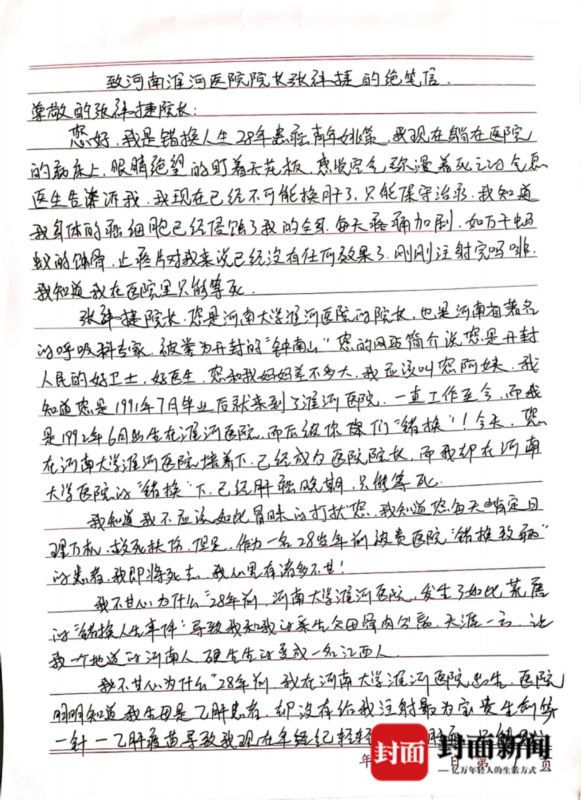 致河南淮河医院院长张祥捷的绝笔信.
尊敬的张祥捷院长:
您好,我是错换人生28年患癌青年姚策,我现在躺在医院
的病床上,眼睛绝望的盯着天花板,感觉空气弥漫着死亡的气息
医生告诉我,我现在已经不可能换肝了,只能保守治疗,我知道
我身体的癌细胞已经侵蚀了我的全身,每天疼痛加剧,如万千蚂
蚁的体,止疼片对我来说已经没有任何效果了,刚刚注射完吗啡,
我知道我在医院里只能等死.
张祥捷院长,您是河南大学淮河医院的院长,也是河南省著名
的呼吸科专家,被誉为开封的"钟南山"您的网站简介说您是开封
人民的好卫士,好医生,您和我妈妈差不多大,我应该叫您阿姨,我
知道您是1991年7月毕业后就来到了淮河医院,一直工作至今,而我
是1992年6月出生在淮河医院,而后被你们"错换"!今天,您
在河南大学淮河医院培养下,已经成为医院院长,而我却在河南
大学医院的"错换"下,已经肝癌晚期,只能等死.
我知道我不应该如此冒昧的打扰您,我知道您每天肯定日
理万机,救死扶伤,但是,作为一名28岁年前被贵医院"错换致癌"
的患者,我即将死去,我心里有诸多不甘!
我不甘心为什么"28年前,河南大学淮河医院,发生了如此荒唐
的"错换人生事件"导致我和我的亲生父母骨肉分离,天涯一方,让
我一个地道的河南人,硬生生的变成一名江西人.
我不甘心为什么"28年前,我在河南大学淮河医院出生,医院
明明知道我生母是乙肝患者,却没有给我注射最为宝贵生的第
一针—乙肝疫苗,导致我现在年经纪轻轻
年 日 第 页
封面 封面新闻
亿万年轻人的生活方式